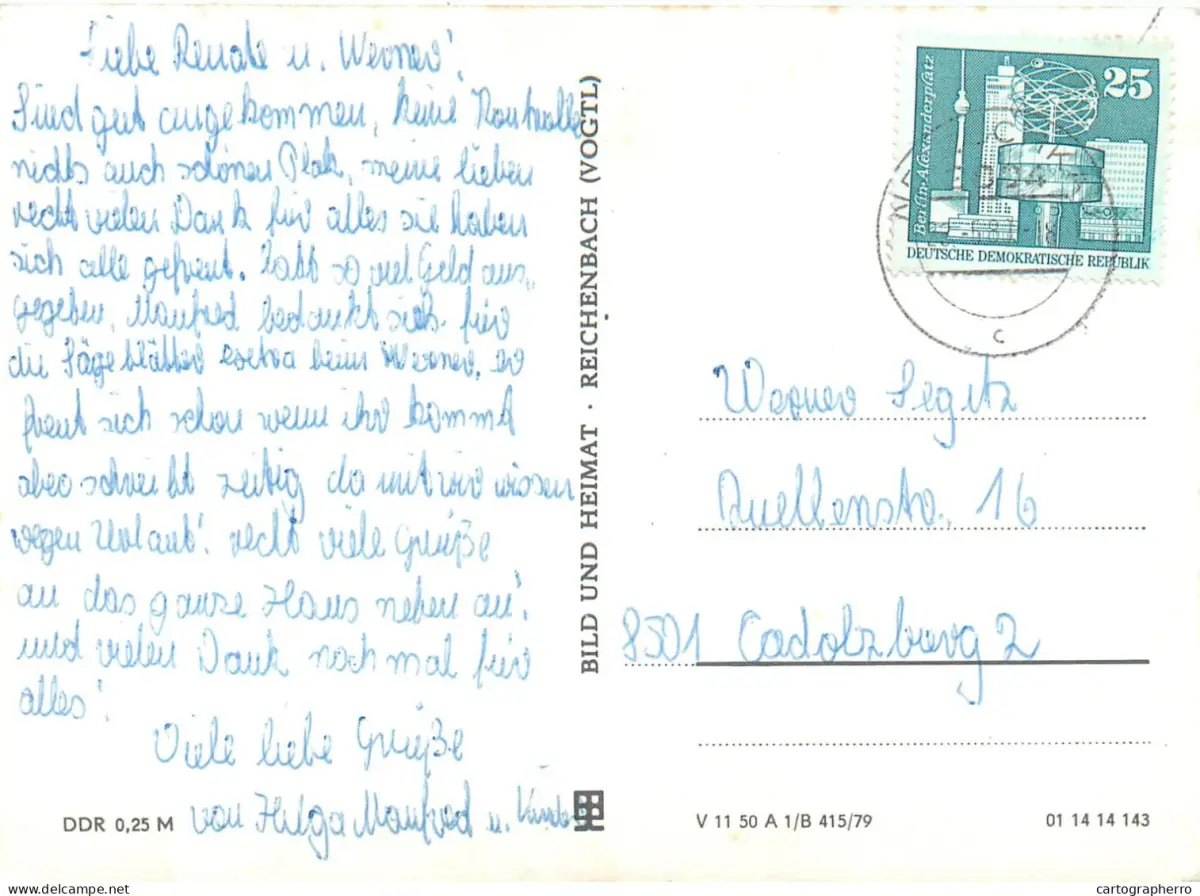 Liebe Renate u. Werner!
Sind gut angekommen, keine Kontrolle
nichts auch schönen Platz, meine lieben
recht vielen Dank für alles sie haben
sich alle gefreut. habt so viel Geld aus,
gegeben, Manfred bedankt sich für
die Sägeblätter extra beim Werner, er
freut sich schon wenn ihr kommt
aber schreibt zeitig da mit wir wissen
wegen Urlaub! recht viele Grüße
an das ganze Haus neben an!
und vielen Dank noch mal für
alles!
Viele liebe Grüße
von Helga Manfred u. Kinder
DDR 0,25 M
BILD UND HEIMAT · REICHENBACH (VOGTL)
Berlin-Alexanderplatz
25
DEUTSCHE DEMOKRATISCHE REPUBLIK
c
Werner Segitz
Quellenstr. 16
8501 Cadolzburg 2
V 11 50 A 1/B 415/79
01 14 14 143
https://www.delcampe.net
cartographerro